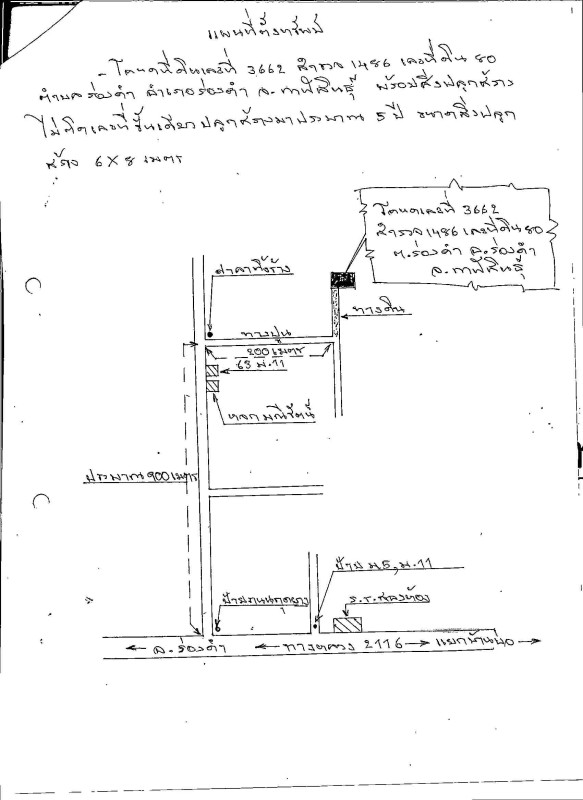 แผนที่ตั้งทรัพย์
- โฉนดที่ดินเลขที่ 3662 สำรวจ 1486 เลขที่ดิน 80
ตำบลร่องคำ อำเภอร่องคำ จ.กาฬสินธุ์ พร้อมสิ่งปลูกสร้าง
ไม่ติดเลขที่ชั้นเดียวปลูกสร้างมาประมาณ 5 ปี ขนาดสิ่งปลูก
สร้าง 6 X 8 เมตร
โฉนดเลขที่ 3662
สำรวจ 1486 เลขที่ดิน 80
ต.ร่องคำ อ.ร่องคำ
จ.กาฬสินธุ์
ศาลาทิ้งร้าง
ทางดิน
ทางปูน
200 เมตร
63 ม.11
หอกมณีรัตน์
ประมาณ 900 เมตร
ป้าย ม.5, ม.11
ร.ร.
← อ.ร่องคำ ← ทางหลวง 2116 → แยกบ้านบ่อ →